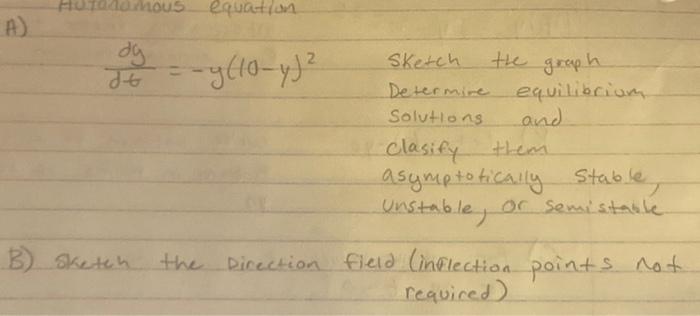 Autonomous equation
A)
dy/dt = -y(10-y)²
Sketch the graph
Determine equilibrium
Solutions and
clasify them
asymptotically Stable,
Unstable, or semistable
B) Sketch the Direction field (inflection points not
required)